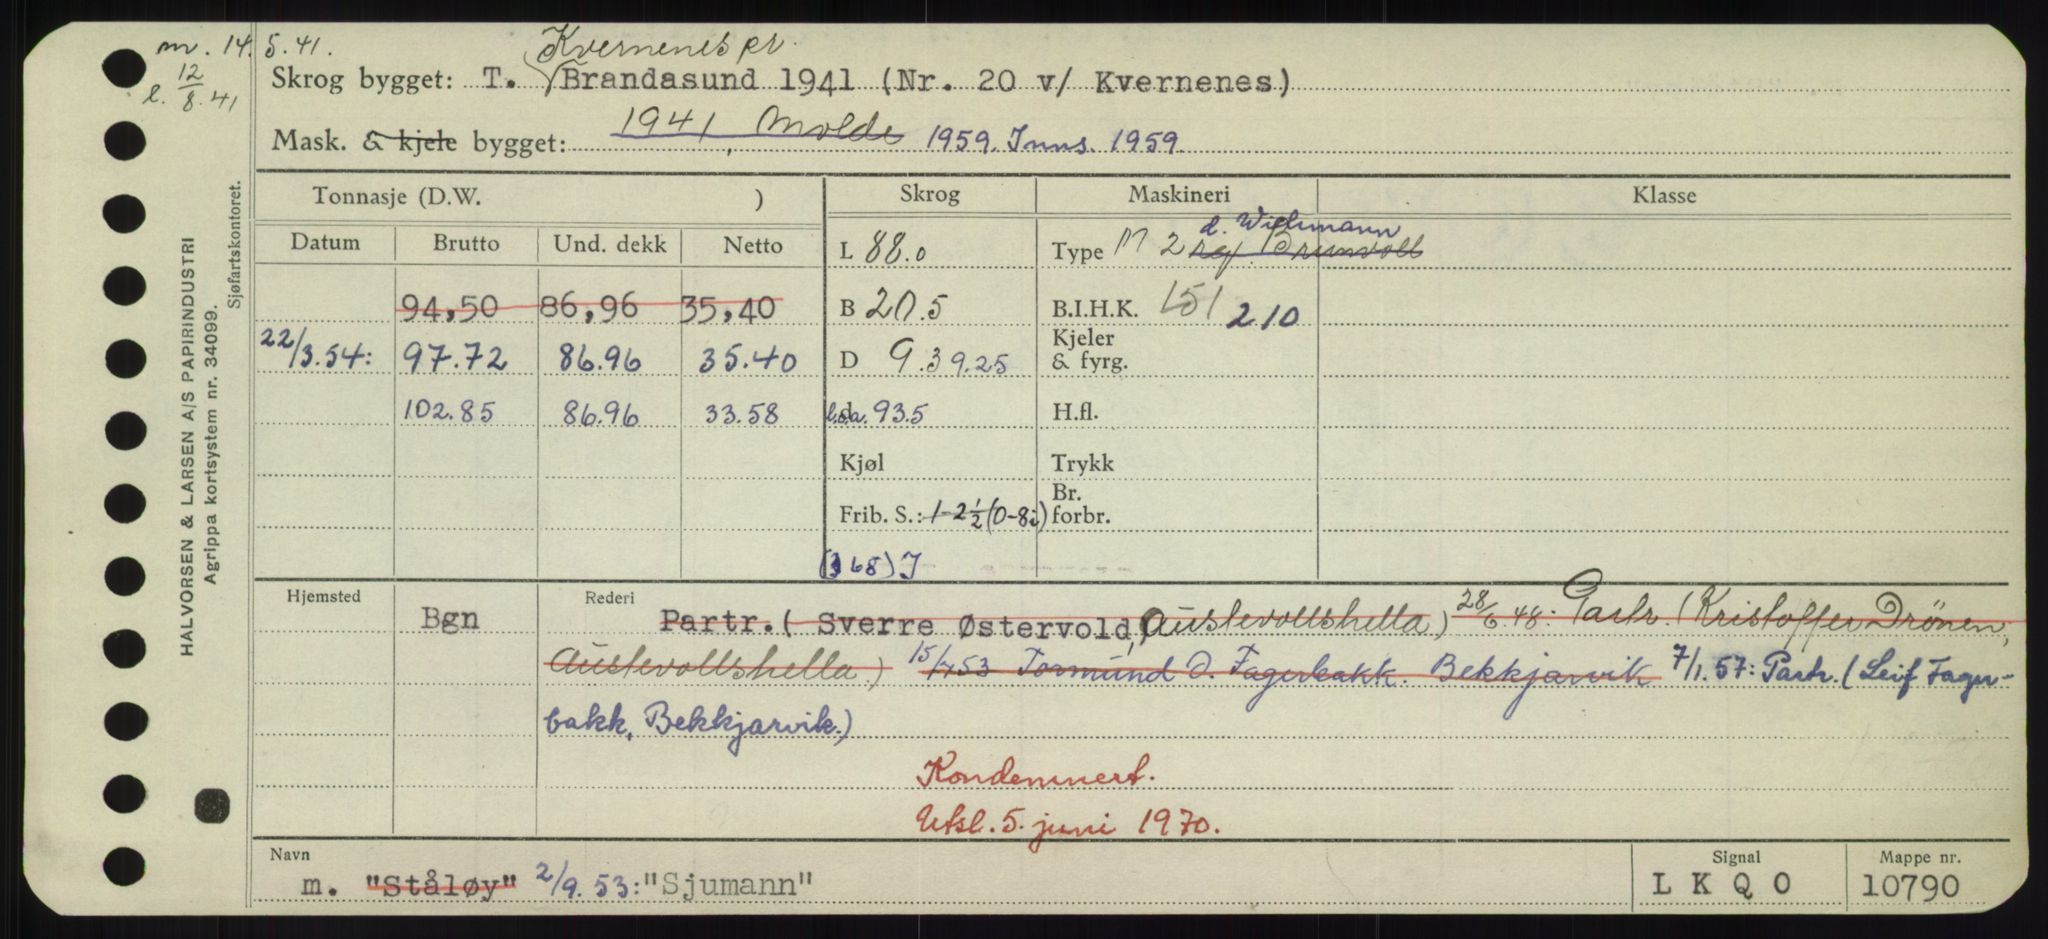 m. 14.5.41.
l. 12/8.41
Kvernenes pr.
Skrog bygget: T. Brandasund 1941 (Nr. 20 v/ Kvernenes)
Mask. & kjele bygget: 1941, Molde 1959. Inns. 1959.
Tonnasje (D.W. ) Skrog Maskineri Klasse
Datum Brutto Und. dekk Netto
L 88.0 Type M 2 rgf. Brunvoll d. Wichmann
94,50 86,96 35,40 B 20.5 B.I.H.K. 151 210
22/3.54: 97.72 86.96 35.40 D 9.3 9.25 Kjeler & fyrg.
102.85 86.96 33.58 d l.o.a. 93.5 H.fl.
Kjøl Trykk
Frib. S.: 1-2½ (0-8i) Br. forbr.
(368) I
Hjemsted Bgn Rederi Partr. ( Sverre Østervold, Austevollshella) 28/6.48: Partr. (Kristoffer Drönen,
Austevollshella.) 15/7.53 Tormund O. Fagerbakk. Bekkjarvik 7/1.57: Partr. (Leif Fager-
bakk, Bekkjarvik.)
Kondemnert.
Utsl. 5. juni 1970.
Navn Signal Mappe nr.
m. "Ståløy" 2/9.53: "Sjumann" L K Q O 10790
HALVORSEN & LARSEN A/S PAPIRINDUSTRI
Agrippa kortsystem nr. 34099.
Sjøfartskontoret.